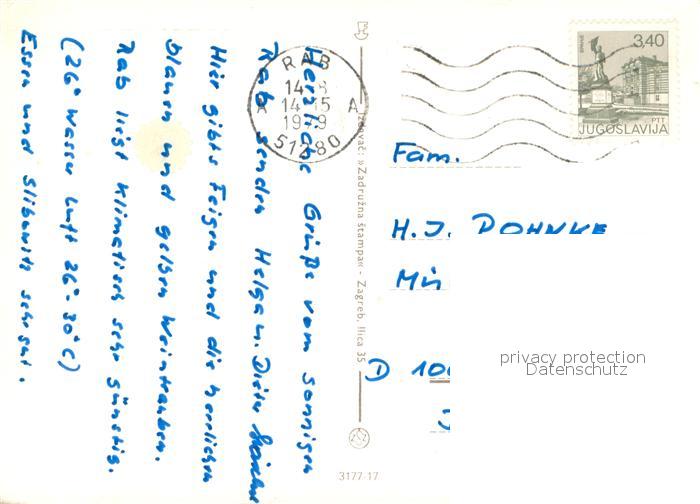 Herzliche Grüße vom Sonnigen
Rab senden Helga u. Dieter
Hier gibts Feigen und die herrlichen
blauen und gelben Weintrauben.
Rab liegt klimatisch sehr günstig.
(26° Wasser Luft 26°-30°C)
Essen und Slibowitz sehr gut.
Izdavač: »Zadružna štampa« - Zagreb, Ilica 35
3177-17
RAB
14-15
A A
51280
3,40
PTT
JUGOSLAVIJA
Fam.
H. J. DOHNKE
D 10
privacy protection
Datenschutz